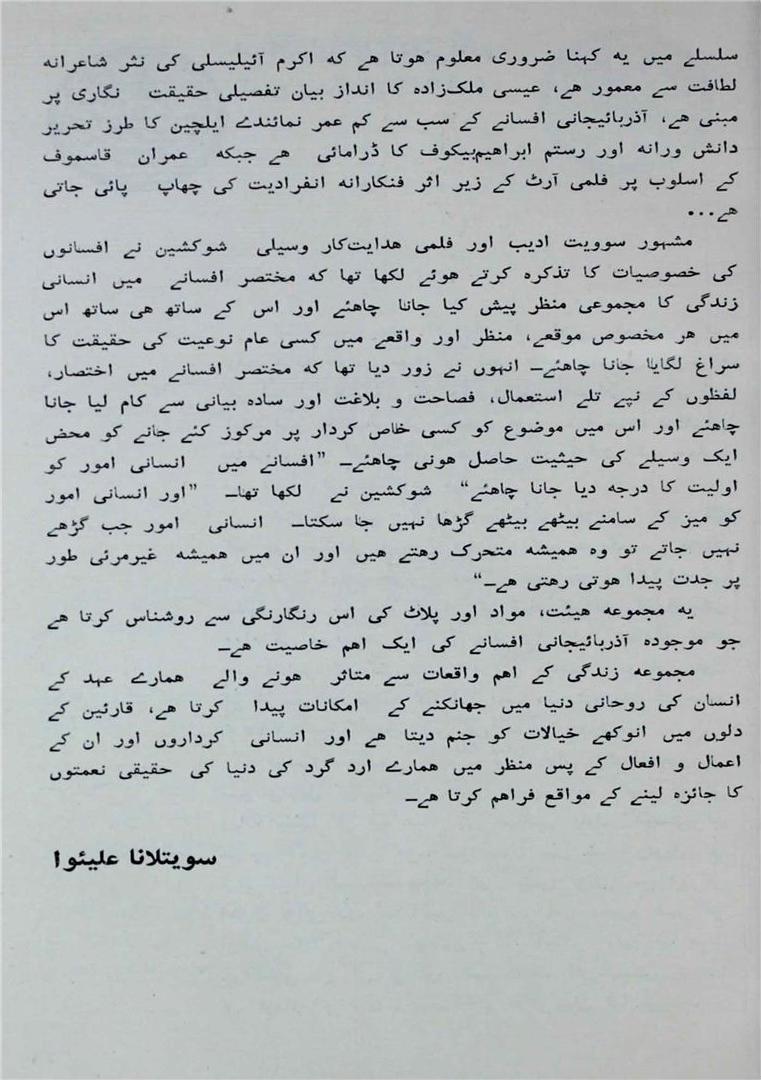 سلسلے میں یه کہنا ضروری معلوم هوتا هے که اکرم آئیلیسلی کی نثر شاعرانه
لطافت سے معمور هے، عیسی ملک‌زاده کا انداز بیان تفصیلی حقیقت نگاری پر
مبنی هے، آذربائیجانی افسانے کے سب سے کم عمر نمائندے ایلچین کا طرز تحریر
دانش ورانه اور رستم ابراهیم‌بیکوف کا ڈرامائی هے جبکه عمران قاسموف
کے اسلوب پر فلمی آرٹ کے زیر اثر فنکارانه انفرادیت کی چھاپ پائی جاتی
هے...
مشہور سوویت ادیب اور فلمی هدایت‌کار وسیلی شوکشین نے افسانوں
کی خصوصیات کا تذکره کرتے هوئے لکھا تھا که مختصر افسانے میں انسانی
زندگی کا مجموعی منظر پیش کیا جانا چاهئے اور اس کے ساتھ هی ساتھ اس
میں هر مخصوص موقعے، منظر اور واقعے میں کسی عام نوعیت کی حقیقت کا
سراغ لگایا جانا چاهئے۔ انہوں نے زور دیا تھا که مختصر افسانے میں اختصار،
لفظوں کے نپے تلے استعمال، فصاحت و بلاغت اور ساده بیانی سے کام لیا جانا
چاهئے اور اس میں موضوع کو کسی خاص کردار پر مرکوز کئے جانے کو محض
ایک وسیلے کی حیثیت حاصل هونی چاهئے۔ ”افسانے میں انسانی امور کو
اولیت کا درجه دیا جانا چاهئے“ شوکشین نے لکھا تھا۔ ”اور انسانی امور
کو میز کے سامنے بیٹھے بیٹھے گڑها نہیں جا سکتا۔ انسانی امور جب گڑھے
نہیں جاتے تو وه همیشه متحرک رهتے هیں اور ان میں همیشه غیرمرئی طور
پر جدت پیدا هوتی رهتی هے۔“
یه مجموعه هیئت، مواد اور پلاٹ کی اس رنگارنگی سے روشناس کرتا هے
جو موجوده آذربائیجانی افسانے کی ایک اهم خاصیت هے۔
مجموعه زندگی کے اهم واقعات سے متاثر هونے والے همارے عہد کے
انسان کی روحانی دنیا میں جھانکنے کے امکانات پیدا کرتا هے، قارئین کے
دلوں میں انوکھے خیالات کو جنم دیتا هے اور انسانی کرداروں اور ان کے
اعمال و افعال کے پس منظر میں همارے ارد گرد کی دنیا کی حقیقی نعمتوں
کا جائزه لینے کے مواقع فراهم کرتا هے۔
سویتلانا علیئوا